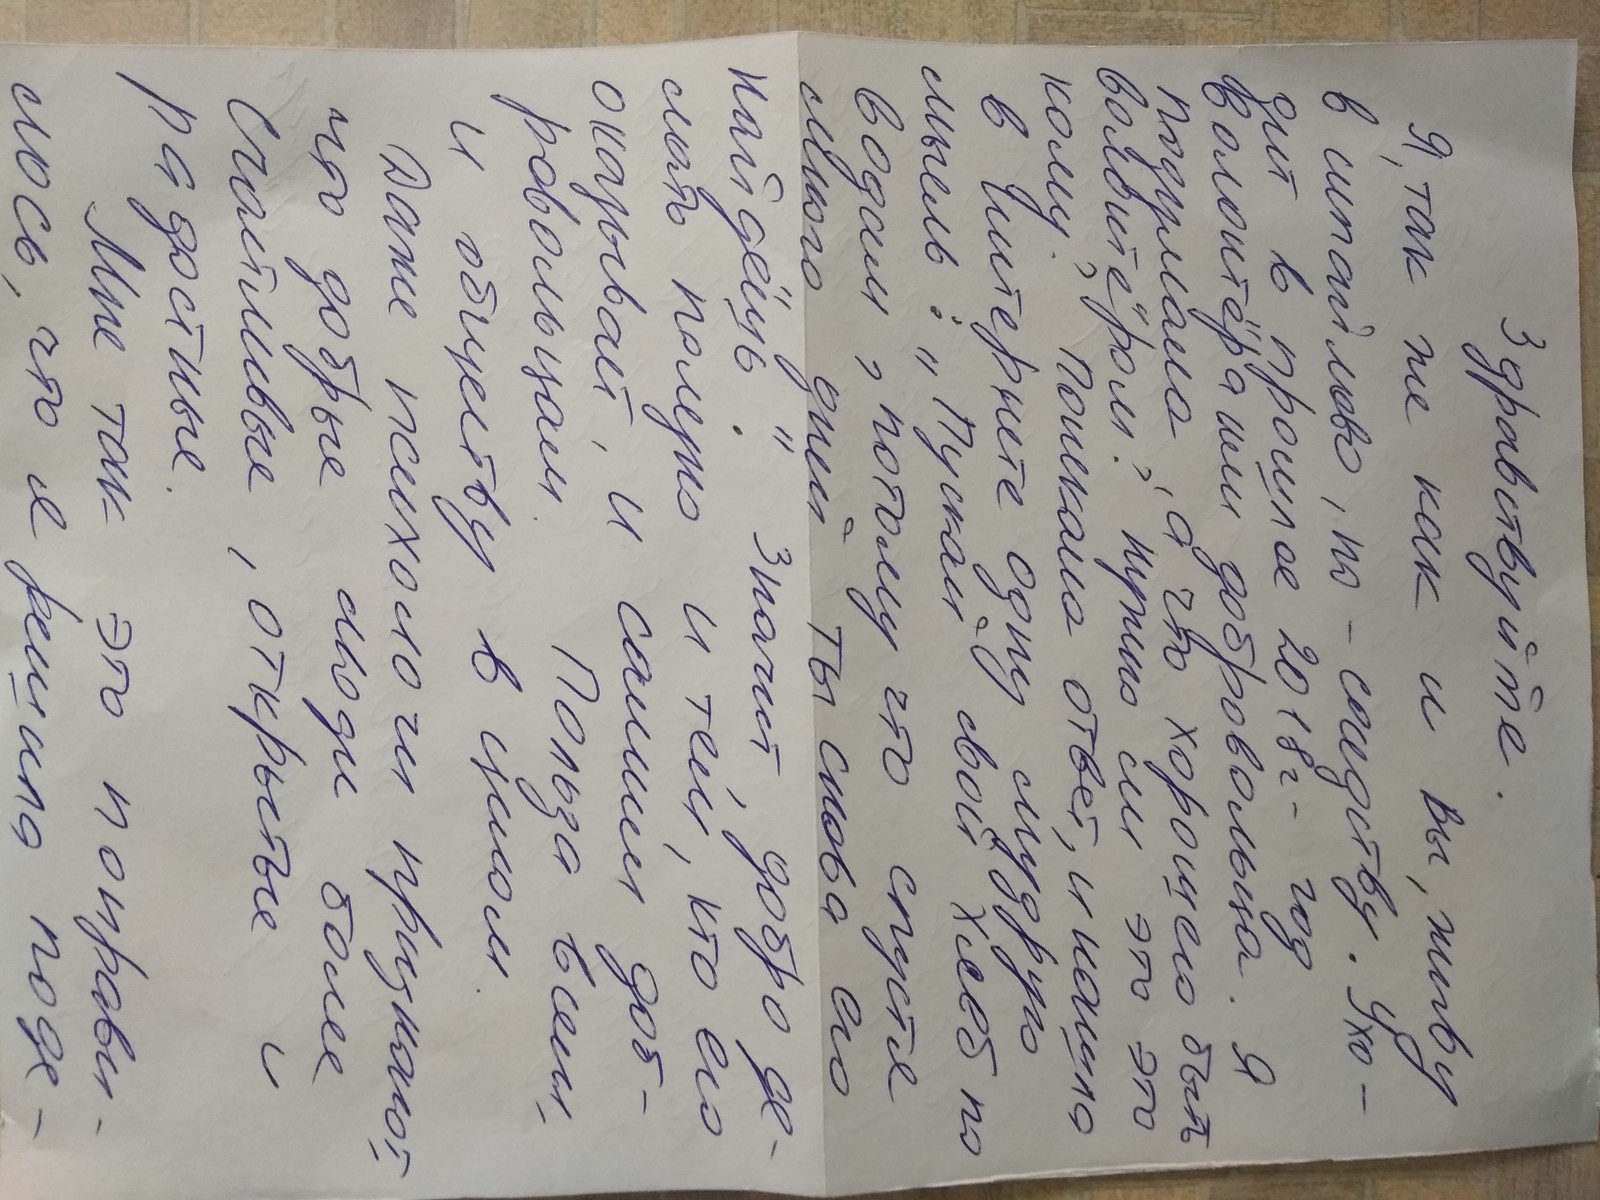 Здравствуйте.
Я, так же как и вы, живу
в интайлово, по-соидству. Ухо-
дит в прошлое 2018г- год
волонтёрами добровольца. Я
подумала, „а что хорошего быть
волонтёром? нужно ли это это
кому? Поискала ответ, и нашла
в интернете одну мудрую
мысль: „Пускай свой хлеб по
водам, потому что спустя
много дней ты снова его
найдёшь". Значит, добро де-
лать полезно и тем, кто его
оказывает, и самим доб-
ровольцам. Польза всем,
и обществу в целом.
Даже психологи признают
что добрые люди более
Счастливые, открытые и
радостные.
Мне так это понрави-
лось, что я решила поде-